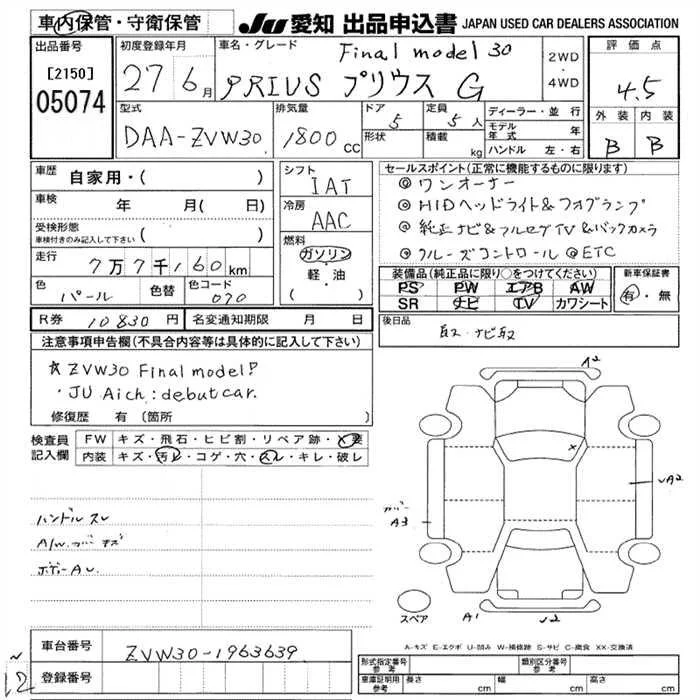 車内保管・守衛保管
JU 愛知 出品申込書 JAPAN USED CAR DEALERS ASSOCIATION
出品番号
[2150]
05074
初度登録年月
27 6月
車名・グレード
Final model 30
PRIUS プリウス G
2WD
・
4WD
評価点
4.5
外装 内装
B B
型式
DAA-ZVW30
排気量
1800 CC
ドア 5
形状
定員 5人
積載 kg
ディーラー・並行
モデル年式 年
ハンドル 左・右
車歴
自家用・( )
車検 年 月( 日)
受検形態
車検付きのみ記入して下さい ( )
走行 7万7千160km
色 パール 色替 色コード 070
シフト
IAT
冷房
AAC
燃料
ガソリン
・
軽・油
( )
セールスポイント(正常に機能するものに限ります)
◎ワンオーナー
◎HIDヘッドライト&フォグランプ
◎純正ナビ&フルセグTV&バックカメラ
◎クルーズコントロール ◎ETC
装備品(純正品に限り○をつけてください)
PS PW エアB AW
SR ナビ TV カワシート
新車保証書
有・無
R券 10830円 名変通知期限 月 日
後日品
取・ナビ取
注意事項申告欄(不具合内容等は具体的に記入して下さい)
☆ZVW30 Final model!
・JU Aichi debut car.
修復歴 有 〔箇所 〕
検査員記入欄
FW キズ・飛石・ヒビ割・リペア跡・X要
内装 キズ・汚レ・コゲ・穴・スレ・キレ・破レ
ハンドルスレ
A/W カバー キズ
ボディーA
A2
カバー
A3
A2
A1
スペア
A-キズ E-エクボ U-凹み W-補修跡 S-サビ C-腐食 XX-交換済
車台番号 ZVW30-1963639
登録番号
12
形式指定番号 参考
類別区分番号 参考
車庫証明用 参考 長さ cm 幅 cm 高さ cm